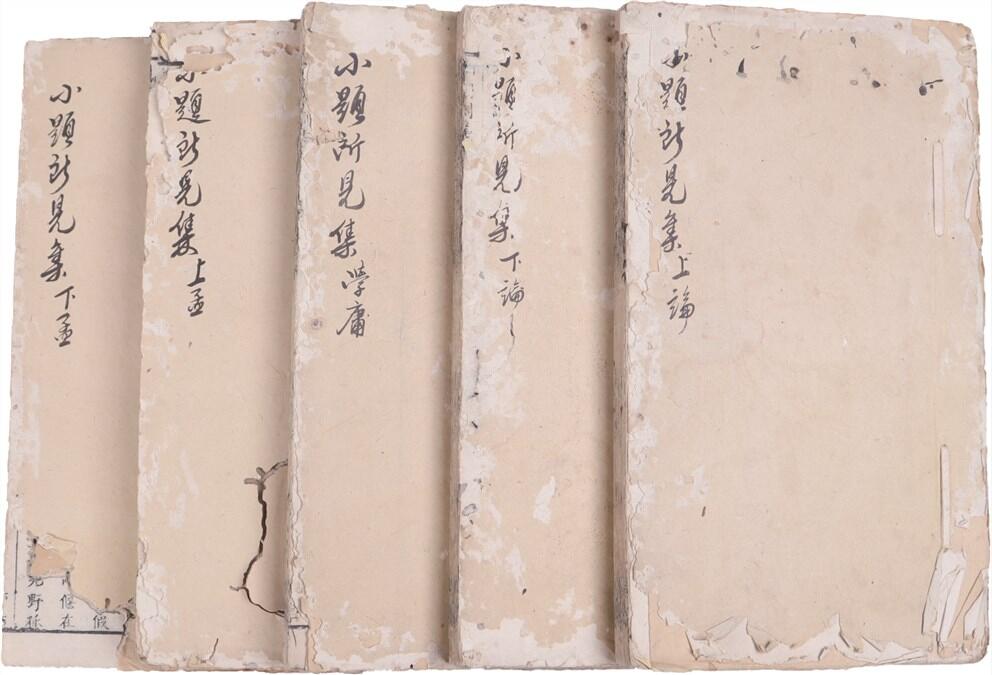 小題所見集上論
小題所見集下論
小題所見集學庸
小題所見集上孟
小題所見集下孟
假
偃在
野孫